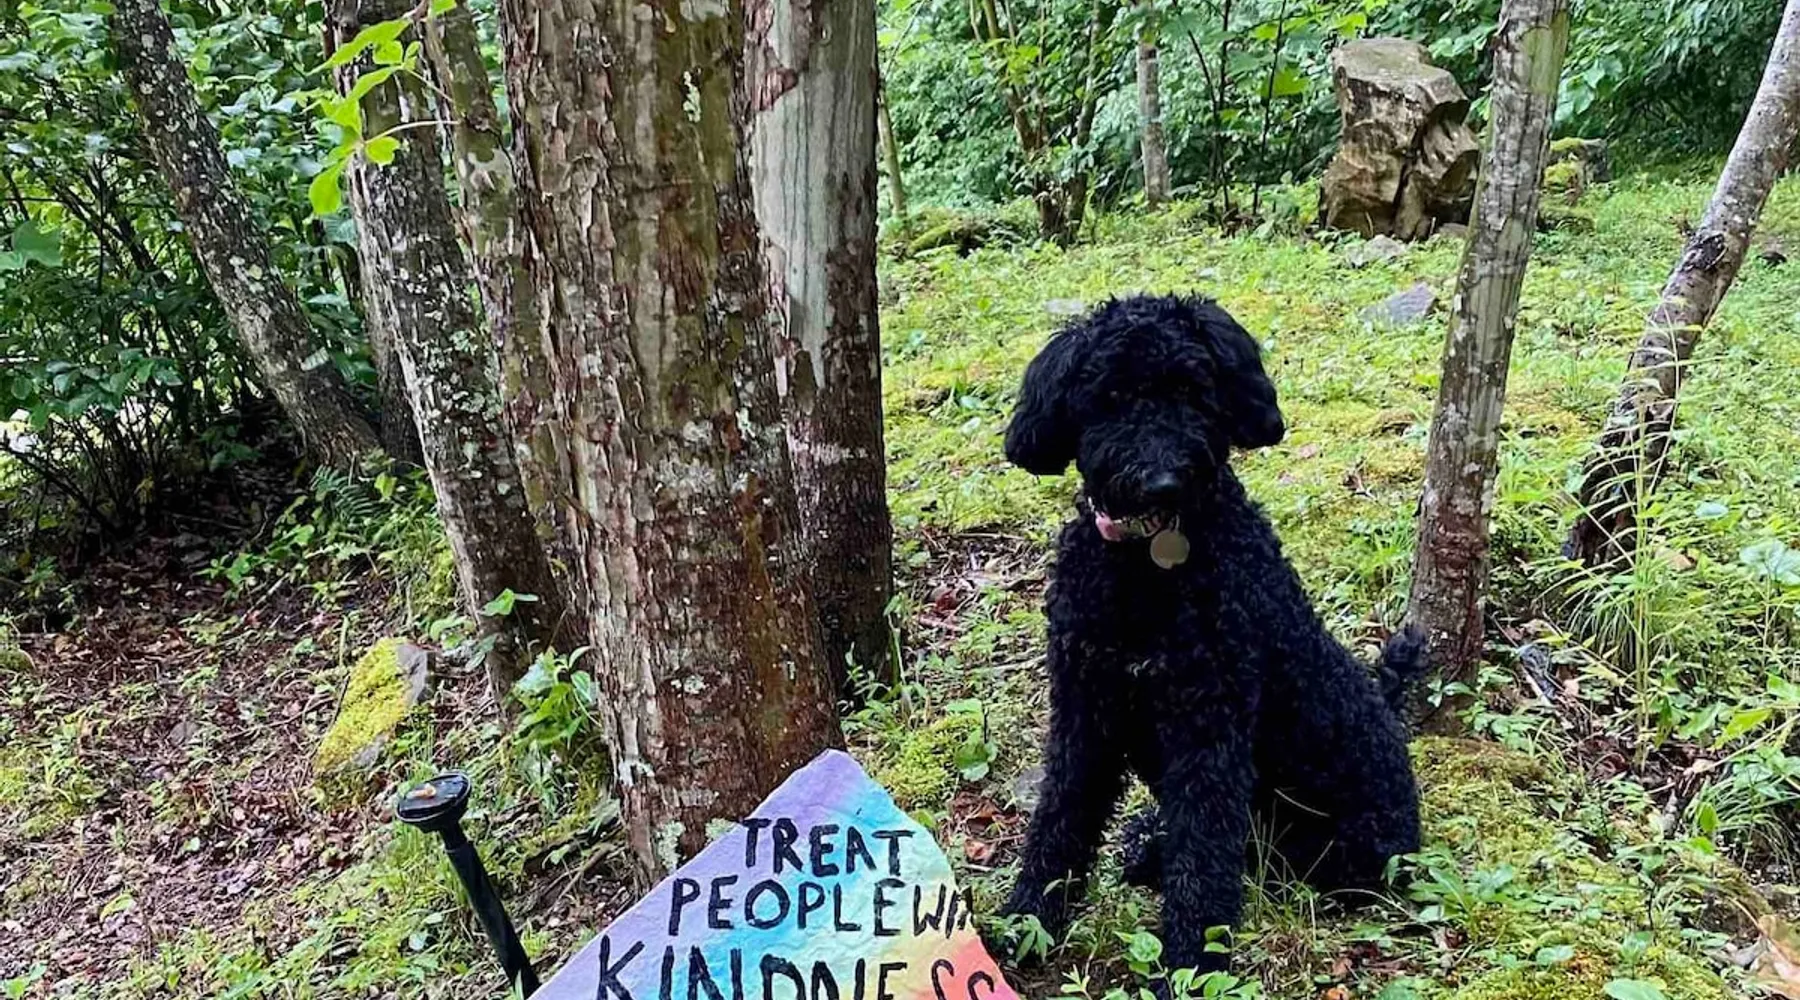 TREAT
PEOPLE WITH
KINDNESS